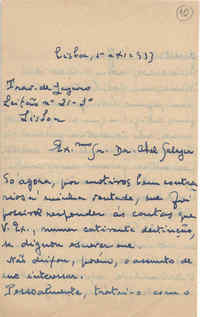 10
Lisboa, 1-XI-933
Trav. do Jogueiro
Leitão nº 21-3º
Lisboa
Ex.mo Sr. Dr. Abel Salazar
Só agora, por motivos bem contra-
rios à minha vontade, me foi
possivel responder às contas que
V. Ex., numa cativante distinção,
se dignou escrever-me.
Não deixou, porém, o assunto de
me interessar.
Pessoalmente, tratei-o com o